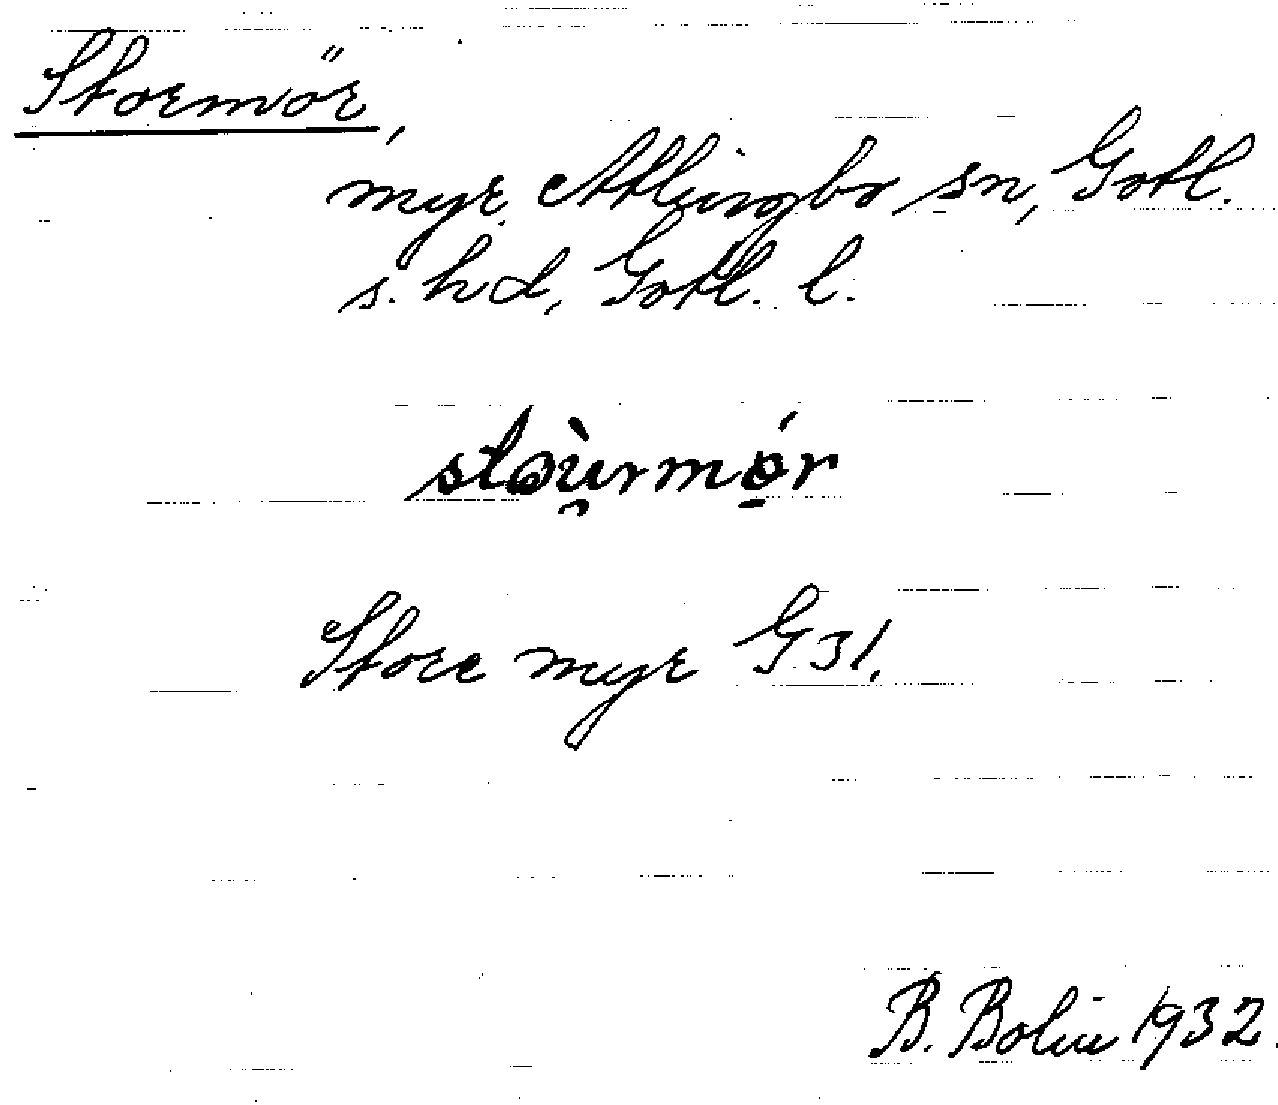 Stormör,
myr Atlingbo sn, Gotl.
s. hd, Gotl. l.
stəù̯rmǫ́r
Store myr G 31.
B. Bolin 1932.